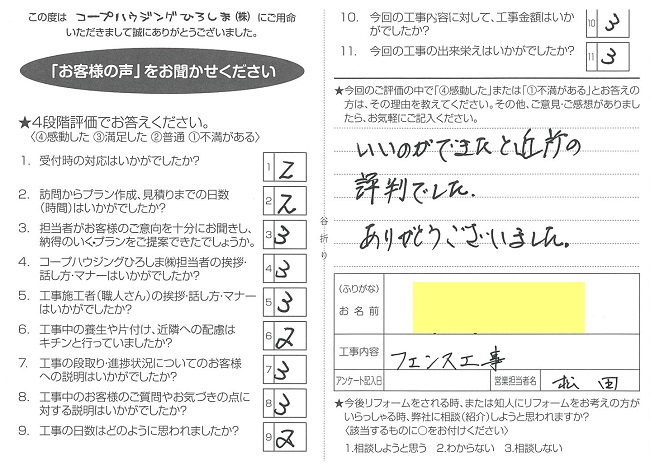 この度は コープハウジングひろしま(株) にご用命
いただきまして誠にありがとうございました。
「お客様の声」をお聞かせください
★4段階評価でお答えください。
〈④感動した ③満足した ②普通 ①不満がある〉
1. 受付時の対応はいかがでしたか? 1 2
2. 訪問からプラン作成、見積りまでの日数
(時間)はいかがでしたか? 2 2
3. 担当者がお客様のご意向を十分にお聞きし、
納得のいくプランをご提案できたでしょうか。 3 3
4. コープハウジングひろしま㈱担当者の挨拶・
話し方・マナーはいかがでしたか? 4 3
5. 工事施工者(職人さん)の挨拶・話し方・マナー
はいかがでしたか? 5 3
6. 工事中の養生や片付け、近隣への配慮は
キチンと行っていましたか? 6 2
7. 工事の段取り・進捗状況についてのお客様
への説明はいかがでしたか? 7 3
8. 工事中のお客様のご質問やお気づきの点に
対する説明はいかがでしたか? 8 3
9. 工事の日数はどのように思われましたか? 9 2
谷折り
10. 今回の工事内容に対して、工事金額はいか
がでしたか? 10 3
11. 今回の工事の出来栄えはいかがでしたか? 11 3
★今回のご評価の中で「④感動した」または「①不満がある」とお答えの
方は、その理由を教えてください。その他、ご意見・ご感想がありまし
たら、お気軽にご記入ください。
いいのができたと近所の
評判でした。
ありがとうございました。
(ふりがな)
お名前
工事内容 フェンス工事
アンケート記入日 営業担当者名 松田
★今後リフォームをされる時、または知人にリフォームをお考えの方が
いらっしゃる時、弊社に相談(紹介)しようと思われますか?
〈該当するものに○をお付けください〉
1.相談しようと思う 2.わからない 3.相談しない